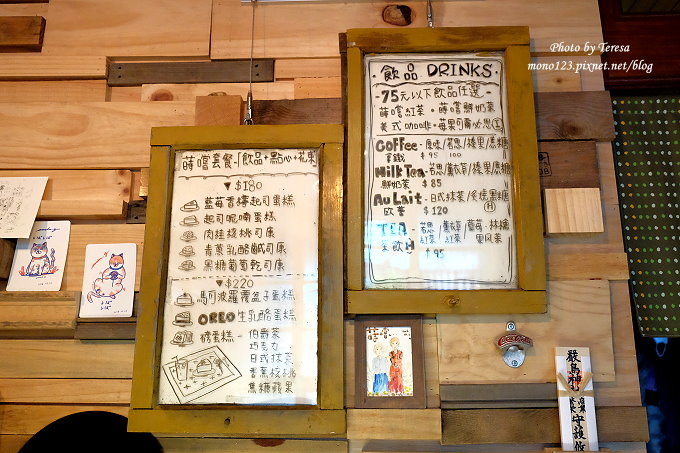 Photo by Teresa
mono123.pixnet.net/blog
飲品 DRINKS
-75元以下飲品任選
蒔嚐紅茶・蒔嚐鮮奶茶
美式咖啡・莓果可爾必思
Coffee-原味/若思/榛果/焦糖
拿鐵 $95 100
Milk Tea-若思/薰衣草/榛果/焦糖
鮮奶茶 $85
Au Lait-日式抹茶/炙燒黑糖
歐蕾 $120 H
TEA 若思/薰衣草/藍莓・林檎
紅茶 紅茶
$95
蒔嚐套餐-「飲品+點心+花東
▼$180
藍莓香檸起司蛋糕
起司呢喃蛋糕
肉桂核桃司康
青蔥乳酪鹹司康
黑糖葡萄乾司康
▼$220
馬可波羅覆盆子蛋糕
OREO生乳酪蛋糕
捲蛋糕-伯爵茶
巧克力
日式抹茶
香蕉核桃
焦糖蘋果
嚴島神
守護